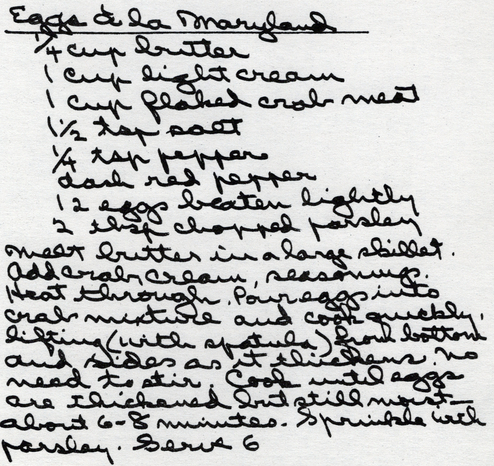 Eggs à la Maryland
1/4 cup butter
1 cup light cream
1 cup flaked crab meat
1 1/2 tsp salt
1/4 tsp pepper
dash red pepper
12 eggs beaten lightly
2 tbsp chopped parsley
Melt butter in a large skillet.
Add crab, cream, seasonings.
Heat through. Pour eggs into
crab mixture and cook quickly,
lifting (with spatula) from bottom
and sides as it thickens. No
need to stir. Cook until eggs
are thickened but still moist -
about 6-8 minutes. Sprinkle with
parsley. Serve 6